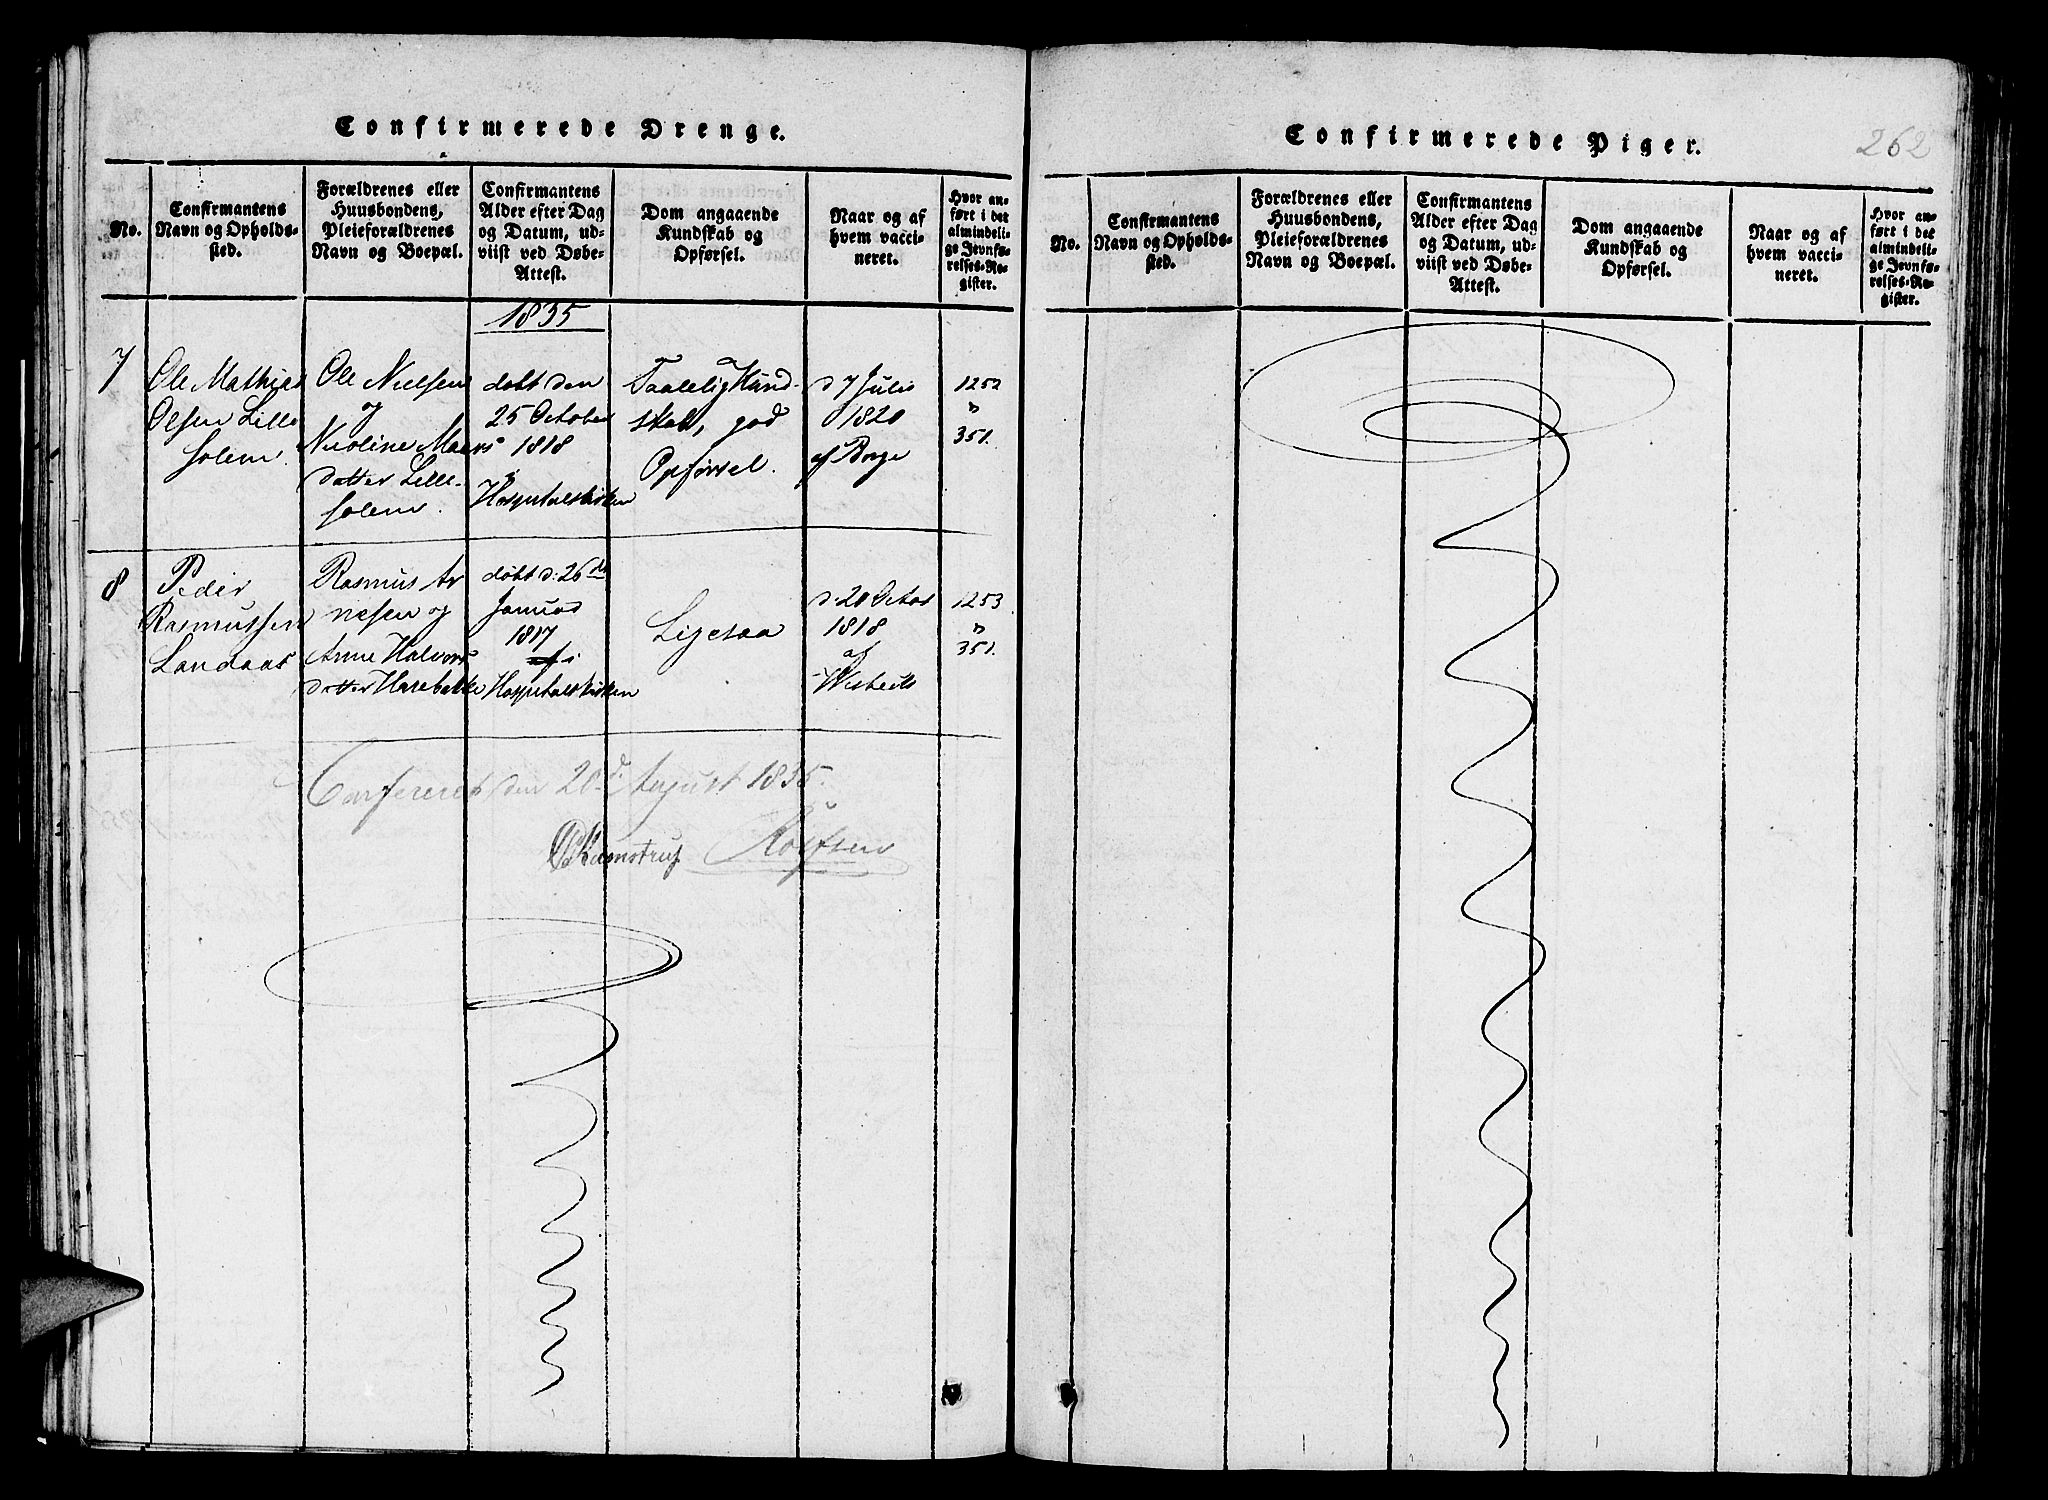 Confirmerede Drenge.
No.
Confirmantens
Navn og Opholds-
sted.
Forældrenes eller
Huusbondens,
Pleieforældrenes
Navn og Boepæl.
Confirmantens
Alder efter Dag
og Datum, ud-
viist ved Døbe-
Attest.
Dom angaaende
Kundskab og
Opførsel.
Naar og af
hvem vacci-
neret.
Hvor an-
ført i det
almindeli-
ge Jevnfø-
relses-Re-
gister.
1835
7
Ole Mathias
Olsen Lille
Solem.
Ole Nielsen
og
Nicoline Maers
datter Lille-
solem.
døbt den
25 October
1818
i
Hospitalskirken
Taalelig Kund-
skab, god
Opførsel.
d 7 Julii
1820
af Borge
1252
"
351.
8
Peder
Rasmussen
Landaas
Rasmus Ar
nesen og
Anne Halvors
datter Harebakke
døbt d: 26de
Januar
1817
i
Hospitalskirken
Ligesaa
d: 20 Octob
1818
af
1253
"
351.
Confereret den 20d. August 1835.
Confirmerede Piger.
262
No.
Confirmantens
Navn og Opholds-
sted.
Forældrenes eller
Huusbondens,
Pleieforældrenes
Navn og Boepæl.
Confirmantens
Alder efter Dag
og Datum, ud-
viist ved Døbe-
Attest.
Dom angaaende
Kundskab og
Opførsel.
Naar og af
hvem vacci-
neret.
Hvor an-
ført i det
almindeli-
ge Jevnfø-
relses-Re-
gister.